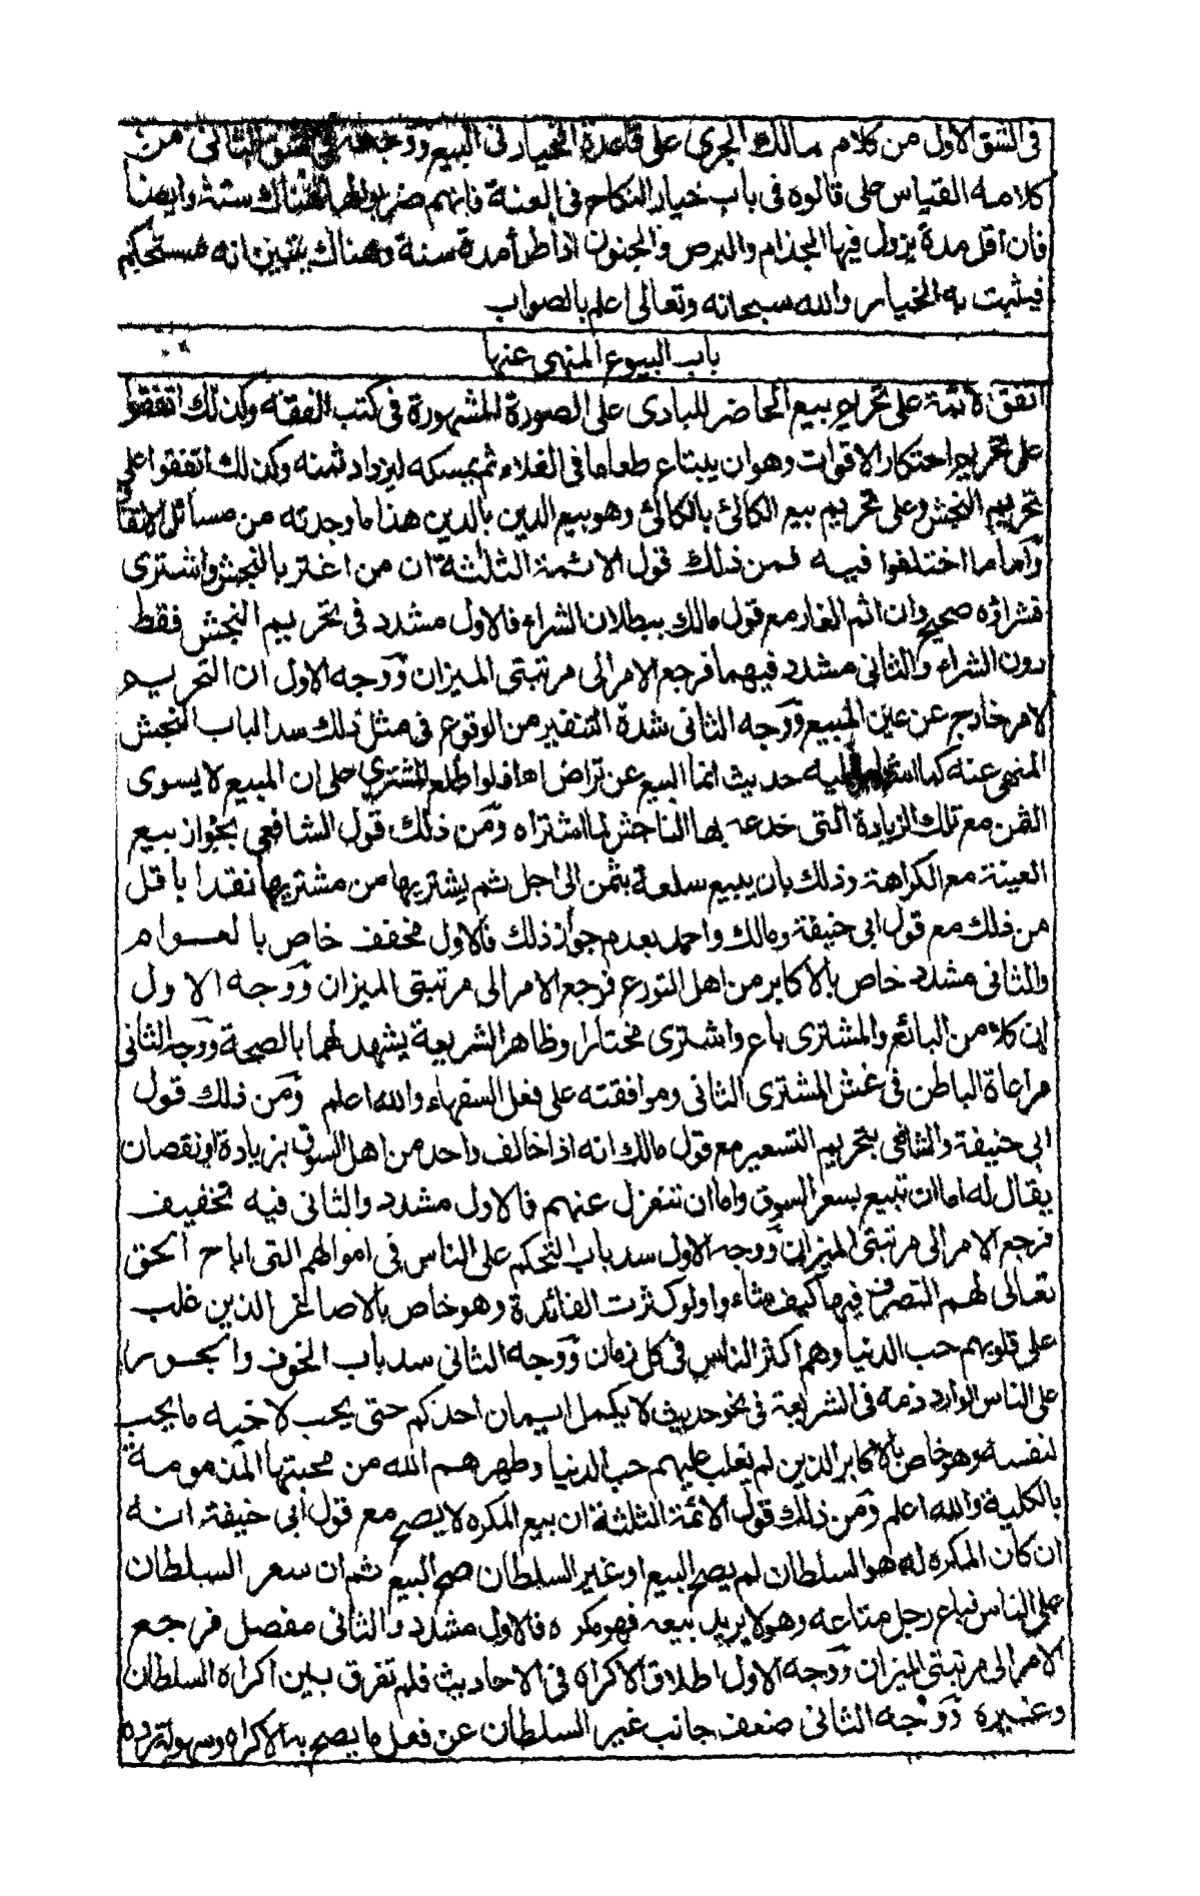 فى الشق الاول من كلام مالك الجرى على قاعدة الخيار فى البيع ووجهه فى الشق الثانى من
كلامه القياس على قالوه فى باب خيار النكاح فى العنة فانهم ضربوا لها هناك سنة وايضا
فان اقل مدة يزول فيها الجذام والبرص والجنون اذا طرأ مدة سنة وهناك يتبين انه مستحكم
فيثبت به الخيار والله سبحانه وتعالى اعلم بالصواب
باب البيوع المنهى عنها
اتفق الائمة على تحريم بيع الحاضر للبادى على الصورة المشهورة فى كتب الفقه وكذلك اتفقوا
على تحريم احتكار الاقوات وهو ان يبتاع طعاما فى الغلاء ثم يمسكه ليزداد ثمنه وكذلك اتفقوا على
تحريم النجش وعلى تحريم بيع الكالئ بالكالئ وهو بيع الدين بالدين هذا ما وجدته من مسائل الاتفاق
وأما ما اختلفوا فيه فمن ذلك قول الائمة الثلثة ان من اغتر بالنجش واشترى
فشراؤه صحيح وان اثم الغار مع قول مالك ببطلان الشراء فالاول مشدد فى تحريم النجش فقط
دون الشراء والثانى مشدد فيهما فرجع الامر الى مرتبتى الميزان ووجه الاول ان التحريم
لامر خارج عن عين المبيع ووجه الثانى شدة التنفير من الوقوع فى مثل ذلك سدا لباب النجش
المنهى عنه كما اليه حديث انما البيع عن تراض اها فلو اطلع المشترى على ان المبيع لا يسوى
الثمن مع تلك الزيادة التى خدعه بها الناجش لما اشتراه ومن ذلك قول الشافعى بجواز بيع
العينة مع الكراهة وذلك بان يبيع سلعة بثمن الى اجل ثم يشتريها من مشتريها نقدا باقل
من ذلك مع قول ابى حنيفة ومالك واحمد بعدم جواز ذلك فالاول مخفف خاص بالعوام
والثانى مشدد خاص بالاكابر من اهل التورع فرجع الامر الى مرتبتى الميزان ووجه الاول
ان كلا من البائع والمشترى باع واشترى مختارا وظاهر الشريعة يشهد لهما بالصحة ووجه الثانى
مراعاة الباطن فى غش المشترى الثانى وموافقته على فعل السفهاء والله اعلم ومن ذلك قول
ابى حنيفة والشافعى بتحريم التسعير مع قول مالك انه اذا خالف واحد من اهل السوق بزيادة او نقصان
يقال له اما ان تبيع بسعر السوق واما ان تنعزل عنهم فالاول مشدد والثانى فيه تخفيف
فرجع الامر الى مرتبتى الميزان ووجه الاول سد باب التحكم على الناس فى اموالهم التى اباح الحق
تعالى لهم التصرف فيها كيف شاءوا ولو كثرت الفائدة وهو خاص بالاصاغر الذين غلب
على قلوبهم حب الدنيا وهم اكثر الناس فى كل زمان ووجه الثانى سد باب الخوف والجور
على الناس الوارد ذمه فى الشريعة فى نحو حديث لا يكمل ايمان احدكم حتى يحب لاخيه ما يحب
لنفسه وهو خاص بالاكابر الذين لم يغلب عليهم حب الدنيا وطهرهم الله من محبتها المذمومة
بالكلية والله اعلم ومن ذلك قول الائمة الثلثة ان بيع المكره لا يصح مع قول أبى حنيفة انه
ان كان المكره له هو السلطان لم يصح البيع او غير السلطان صح البيع ثم ان سعر السلطان
على الناس فباع رجل متاعه وهو لا يريد بيعه فهو مكره فالاول مشدد والثانى مفصل فرجع
الامر الى مرتبتى الميزان ووجه الاول اطلاق الاكراه فى الاحاديث فلم تفرق بين اكراه السلطان
وغيره ووجه الثانى ضعف جانب غير السلطان عن فعل ما يصح به الاكراه وسهولة رده